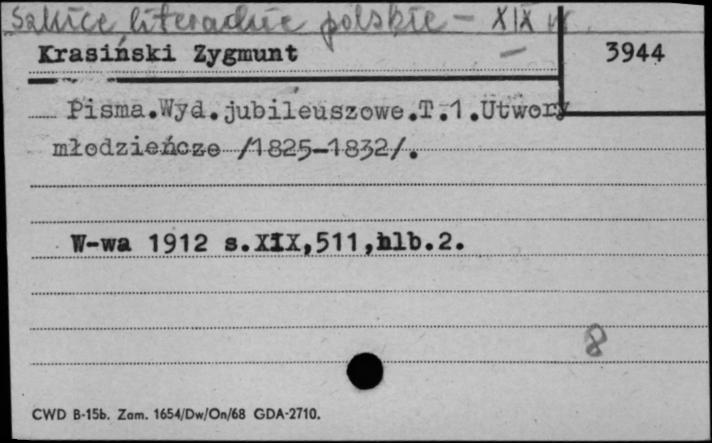 Szkice literackie polskie - XIX w
Krasiński Zygmunt
3944
Pisma.Wyd.jubileuszowe.T.1.Utwory
młodzieńcze /1825-1832/.
W-wa 1912 s.XIX,511,nlb.2.
8
CWD B-15b. Zam. 1654/Dw/On/68 GDA-2710.